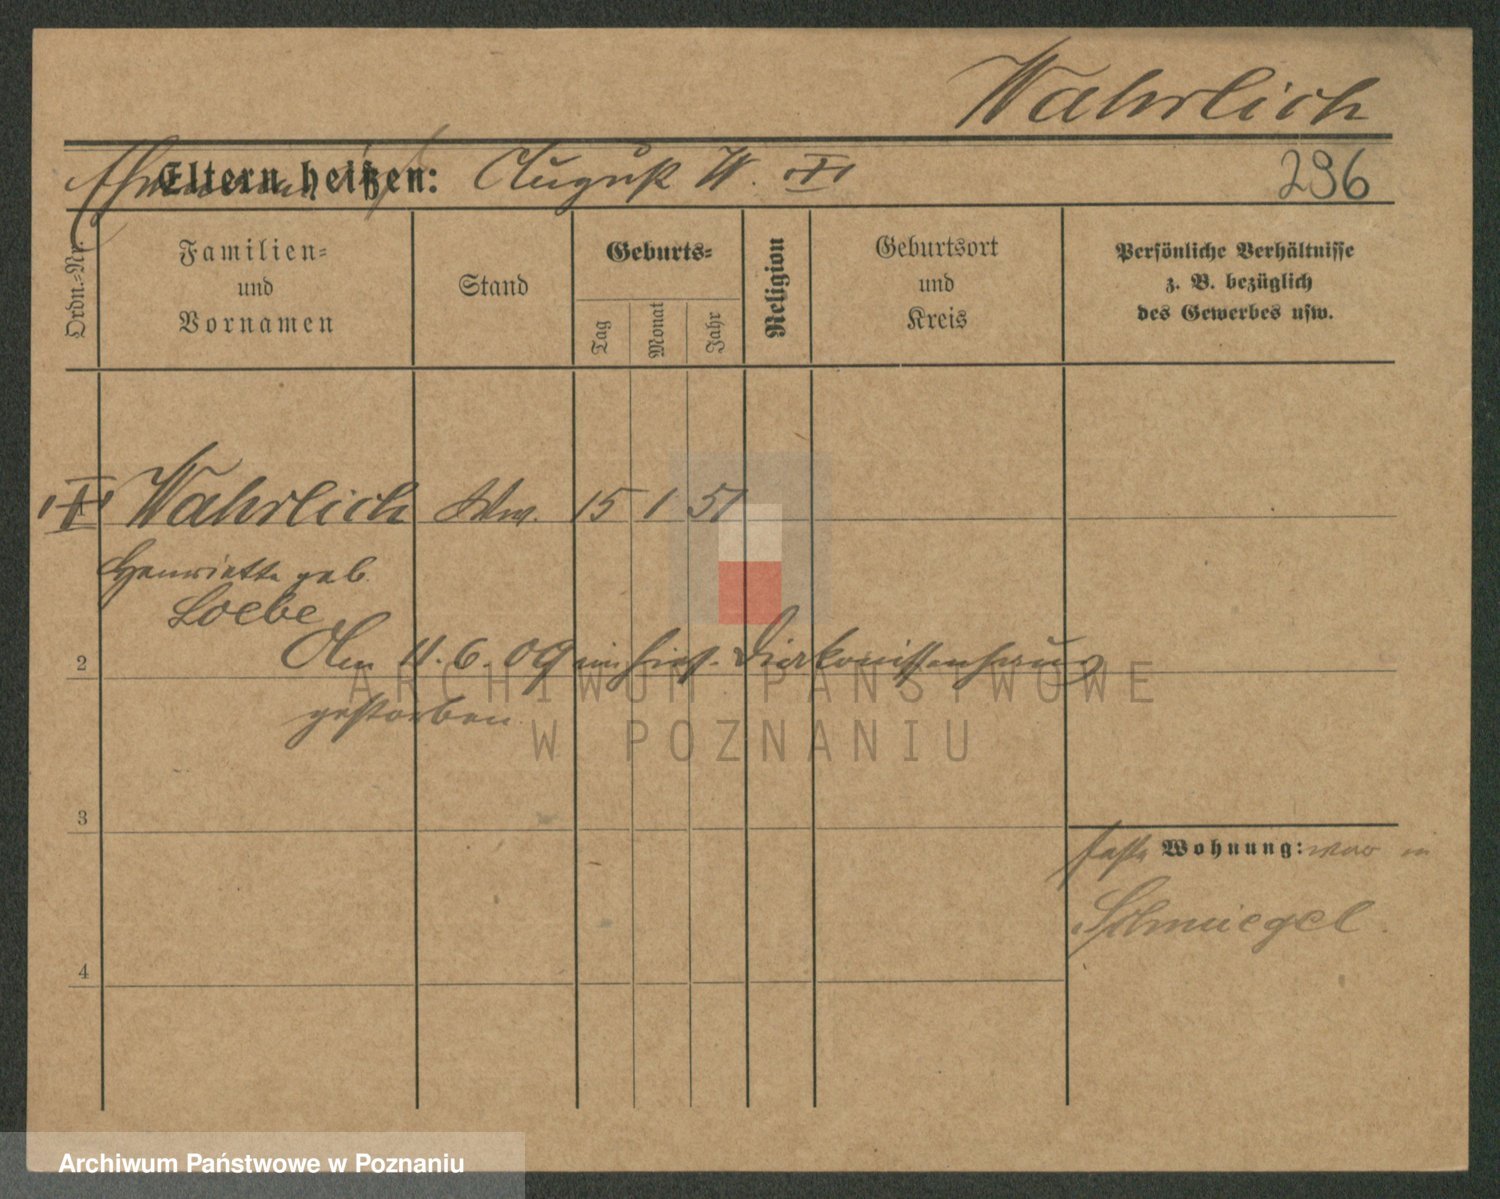 Wahrlich
Eltern heißen: August W.
296
Ordn.-Nr.
Familien-
und
Vornamen
Stand
Geburts-
Tag
Monat
Jahr
Religion
Geburtsort
und
Kreis
Persönliche Verhältnisse
z. B. bezüglich
des Gewerbes usw.
Wahrlich Ww. 15 1 51
Henriette geb.
Loebe
2
Am 11.6.09 im hies. Diakonissenhaus
gestorben
3
feste Wohnung: war in
Schmiegel.
4
ARCHIWUM PAŃSTWOWE
W POZNANIU
Archiwum Państwowe w Poznaniu